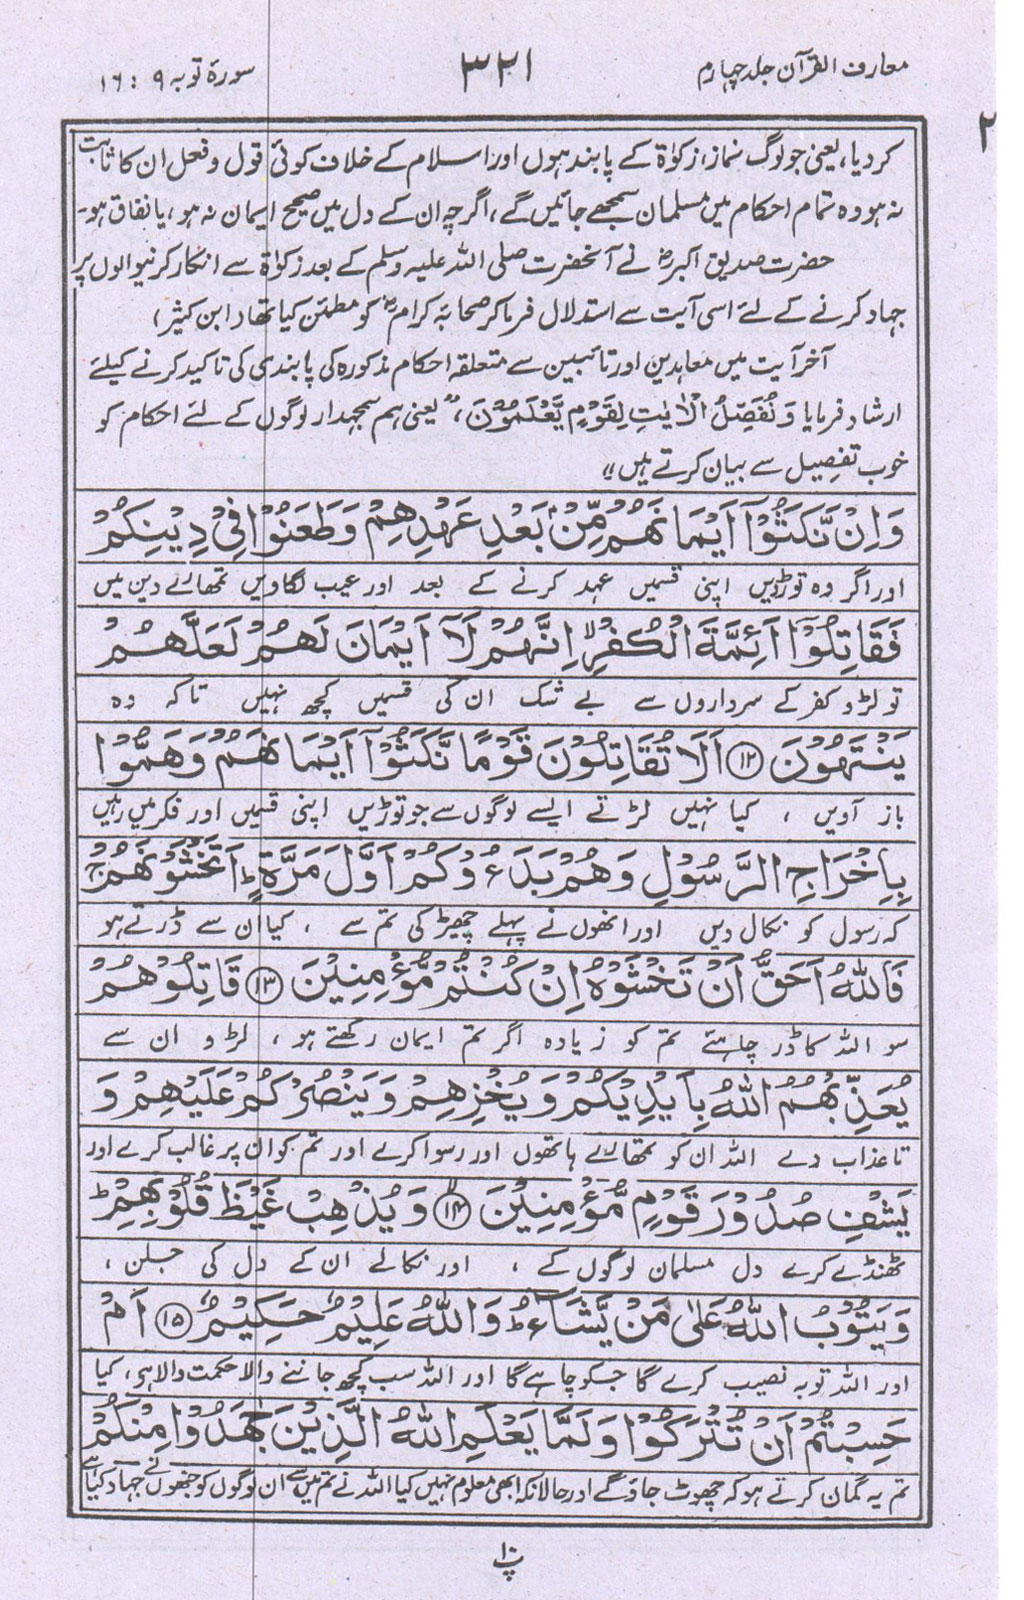 معارف القرآن جلد چہارم
۳۲۱
سورۂ توبہ ۹ : ۱۶
۲
کردیا، یعنی جو لوگ نماز، زکوٰۃ کے پابند ہوں اور اسلام کے خلاف کوئی قول و فعل ان کا ثابت
نہ ہو وہ تمام احکام میں مسلمان سمجھے جائیں گے، اگرچہ ان کے دل میں صحیح ایمان نہ ہو، یا نفاق ہو۔
حضرت صدیق اکبرؓ نے آنحضرت صلی اللہ علیہ وسلم کے بعد زکوٰۃ سے انکار کرنیوالوں پر
جہاد کرنے کے لئے اسی آیت سے استدلال فرما کر صحابۂ کرامؓ کو مطمئن کیا تھا (ابن کثیر)
آخر آیت میں معاہدین اور تائبین سے متعلقہ احکام مذکورہ کی پابندی کی تاکید کرنے کیلئے
ارشاد فرمایا وَنُفَصِّلُ الْاٰیٰتِ لِقَوْمٍ یَّعْلَمُوْنَ، "یعنی ہم سمجھدار لوگوں کے لئے احکام کو
خوب تفصیل سے بیان کرتے ہیں"
وَاِنْ نَّكَثُوْٓا اَیْمَانَهُمْ مِّنْۢ بَعْدِ عَهْدِهِمْ وَطَعَنُوْا فِیْ دِیْنِكُمْ
اور اگر وہ توڑدیں اپنی قسمیں عہد کرنے کے بعد اور عیب لگاویں تمھارے دین میں
فَقَاتِلُوْٓا اَئِمَّةَ الْكُفْرِ ۙ اِنَّهُمْ لَآ اَیْمَانَ لَهُمْ لَعَلَّهُمْ
تو لڑو کفر کے سرداروں سے بے شک ان کی قسمیں کچھ نہیں تاکہ وہ
یَنْتَهُوْنَ ﴿۱۲﴾ اَلَا تُقَاتِلُوْنَ قَوْمًا نَّكَثُوْٓا اَیْمَانَهُمْ وَهَمُّوْا
باز آویں ، کیا نہیں لڑتے ایسے لوگوں سے جو توڑیں اپنی قسمیں اور فکر میں رہیں
بِاِخْرَاجِ الرَّسُوْلِ وَهُمْ بَدَءُوْكُمْ اَوَّلَ مَرَّةٍ ؕ اَتَخْشَوْنَهُمْ ۚ
کہ رسول کو نکال دیں اور انھوں نے پہلے چھیڑ کی تم سے ، کیا ان سے ڈرتے ہو
فَاللّٰهُ اَحَقُّ اَنْ تَخْشَوْهُ اِنْ كُنْتُمْ مُّؤْمِنِیْنَ ﴿۱۳﴾ قَاتِلُوْهُمْ
سو اللہ کا ڈر چاہئے تم کو زیادہ اگر تم ایمان رکھتے ہو ، لڑو ان سے
یُعَذِّبْهُمُ اللّٰهُ بِاَیْدِیْكُمْ وَیُخْزِهِمْ وَیَنْصُرْكُمْ عَلَیْهِمْ وَ
تا عذاب دے اللہ ان کو تمھارے ہاتھوں اور رسوا کرے اور تم کو ان پر غالب کرے اور
یَشْفِ صُدُوْرَ قَوْمٍ مُّؤْمِنِیْنَ ﴿۱۴﴾ وَیُذْهِبْ غَیْظَ قُلُوْبِهِمْ ؕ
ٹھنڈے کرے دل مسلمان لوگوں کے ، اور نکالے ان کے دل کی جلن ،
وَیَتُوْبُ اللّٰهُ عَلٰی مَنْ یَّشَآءُ ؕ وَاللّٰهُ عَلِیْمٌ حَكِیْمٌ ﴿۱۵﴾ اَمْ
اور اللہ توبہ نصیب کرے گا جسکو چاہے گا اور اللہ سب کچھ جاننے والا حکمت والا ہی، کیا
حَسِبْتُمْ اَنْ تُتْرَكُوْا وَلَمَّا یَعْلَمِ اللّٰهُ الَّذِیْنَ جٰهَدُوْا مِنْكُمْ
تم یہ گمان کرتے ہو کہ چھوٹ جاؤ گے اور حالانکہ ابھی معلوم نہیں کیا اللہ نے تم میں سے ان لوگوں کو جنھوں نے جہاد کیا ہے